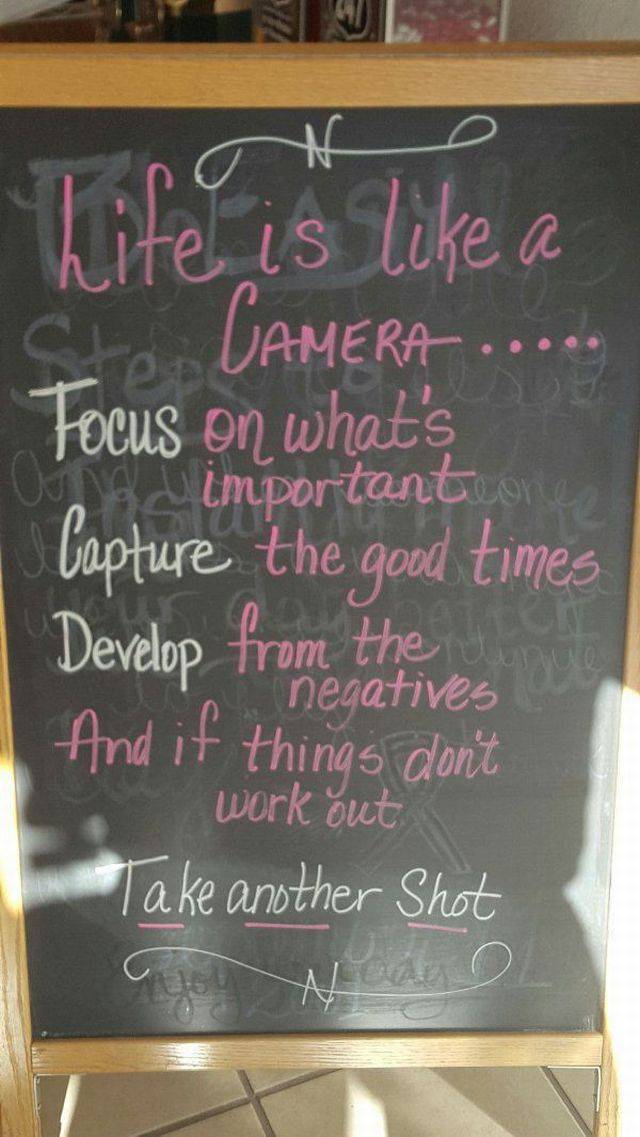 N
Life is like a
CAMERA.....
Focus on what's
important
Capture the good times
Develop from the
negatives
And if things don't
work out
Take another Shot
N